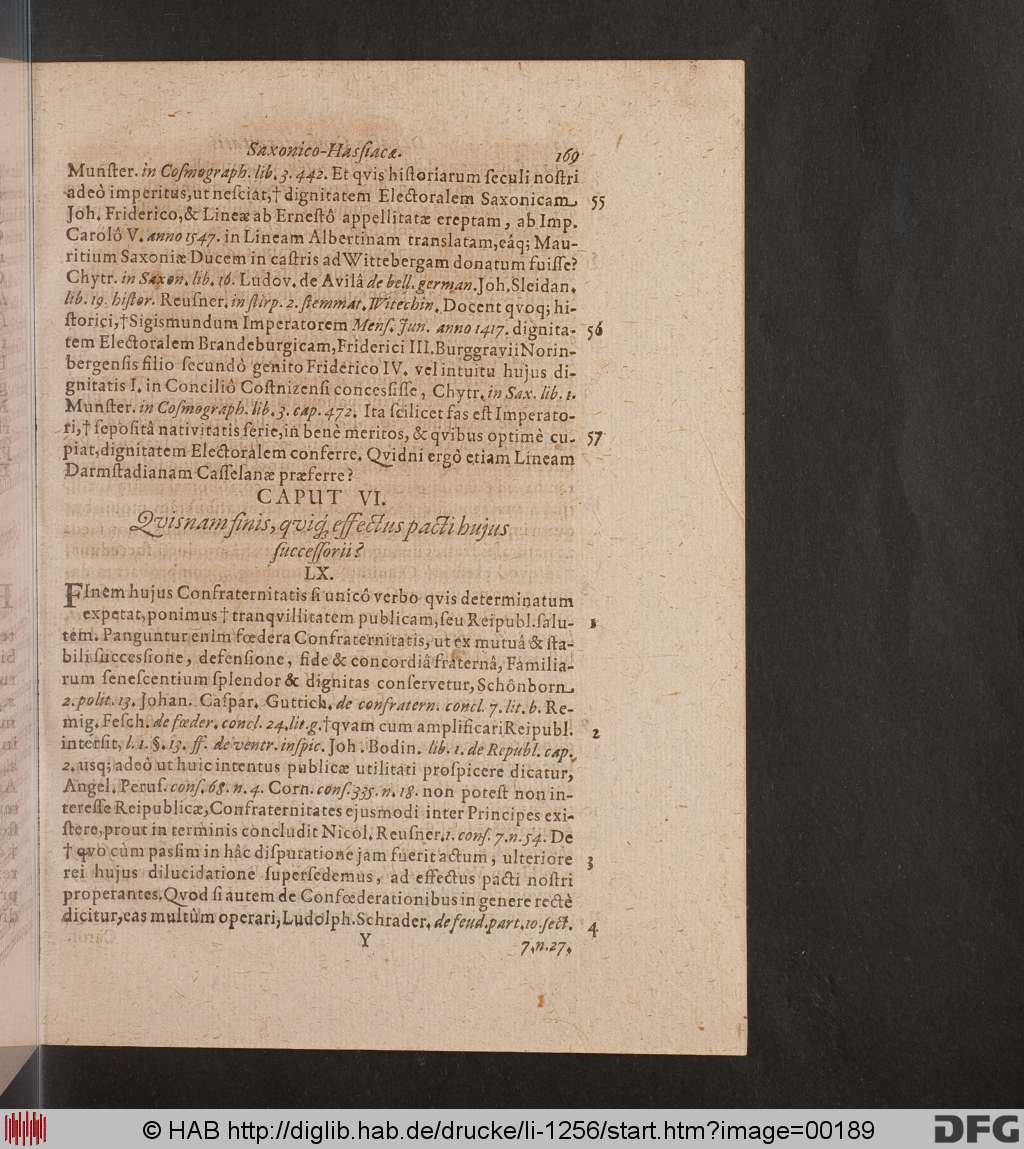 Saxonico-Hasſiacæ. 169
Munſter. in Coſmograph. lib. 3. 442. Et qvis hiſtoriarum ſeculi noſtri
adeò imperitus, ut neſciat, † dignitatem Electoralem Saxonicam 55
Joh. Friderico, & Lineæ ab Erneſtô appellitatæ ereptam, ab Imp.
Carolô V. anno 1547. in Lineam Albertinam translatam, eáq; Mau-
ritium Saxoniæ Ducem in caſtris ad Wittebergam donatum fuiſſe?
Chytr. in Saxon. lib. 16. Ludov. de Avilâ de bell. german. Joh. Sleidan.
lib. 19. hiſtor. Reuſner. in ſtirp. 2. ſtemmat. Witechin. Docent qvoq; hi-
ſtorici, † Sigismundum Imperatorem Menſ. Jun. anno 1417. dignita- 56
tem Electoralem Brandeburgicam, Friderici III. Burggravii Norin-
bergenſis filio ſecundò genito Friderico IV. vel intuitu hujus di-
gnitatis I. in Conciliô Coſtnizenſi conceſsiſſe, Chytr. in Sax. lib. 1.
Munſter. in Coſmograph. lib. 3. cap. 472. Ita ſcilicet fas eſt Imperato-
ri, † ſepoſitâ nativitatis ſerie, in benè meritos, & qvibus optimè cu- 57
piat, dignitatem Electoralem conferre. Qvidni ergò etiam Lineam
Darmſtadianam Caſſelanæ præferre?
CAPUT VI.
Qvisnam finis, qviq́; effectus pacti hujus
ſucceſſorii?
LX.
FInem hujus Confraternitatis ſi unicô verbo qvis determinatum
expetat, ponimus † tranqvillitatem publicam, ſeu Reipubl. ſalu- 1
tem. Panguntur enim fœdera Confraternitatis, ut ex mutuâ & ſta-
bili ſucceſsione, defenſione, fide & concordiâ fraternâ, Familia-
rum ſeneſcentium ſplendor & dignitas conſervetur, Schônborn
2. polit. 13. Johan. Caſpar. Guttich. de confratern. concl. 7. lit. b. Re-
mig. Feſch. de fœder. concl. 24. lit. g. † qvam cum amplificari Reipubl. 2
interſit, l. 1. §. 13. ff. de ventr. inſpic. Joh. Bodin. lib. 1. de Republ. cap.
2. usq; adeò ut huic intentus publicæ utilitati proſpicere dicatur,
Angel. Peruſ. conſ. 68. n. 4. Corn. conſ. 335. n. 18. non poteſt non in-
tereſſe Reipublicæ, Confraternitates ejusmodi inter Principes exi-
ſtere, prout in terminis concludit Nicol. Reuſner. 1. conſ. 7. n. 54. De
† qvo cùm paſſim in hâc diſputatione jam fuerit actum, ulteriore 3
rei hujus dilucidatione ſuperſedemus, ad effectus pacti noſtri
properantes. Qvod ſi autem de Confœderationibus in genere rectè
dicitur, eas multùm operari, Ludolph. Schrader. de feud. part. 10. ſect. 4
Y 7. n. 27.
© HAB http://diglib.hab.de/drucke/li-1256/start.htm?image=00189
DFG